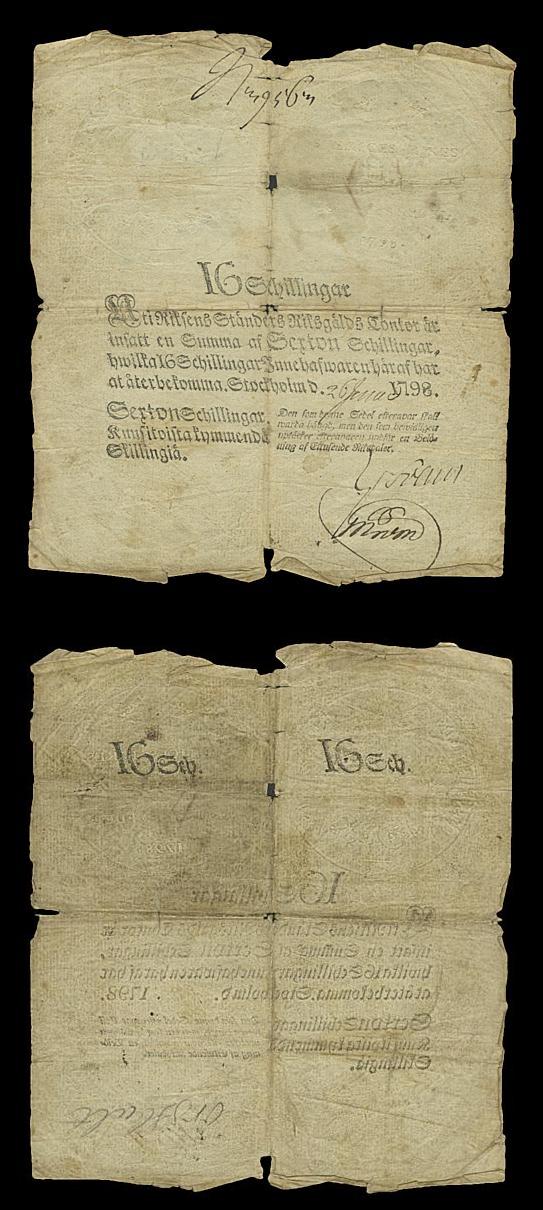 16 Schillingar
Uti Riksens Ständers Riksgälds Contor är
insatt en Summa af Sexton Schillingar,
hwilka 16 Schillingar Innehafwaren häraf har
at återbekomma. Stockholm d. 26 1798.
Sexton Schillingar
Kuusitoistakymmendä
Skillingiä.
Den som denne Sedel efterapar skall
warda hängd, men den som bewisligen
uptäcker efterapningen undfår en Belö-
ning af Ettusende Riksdaler.
16 Sch. 16 Sch.